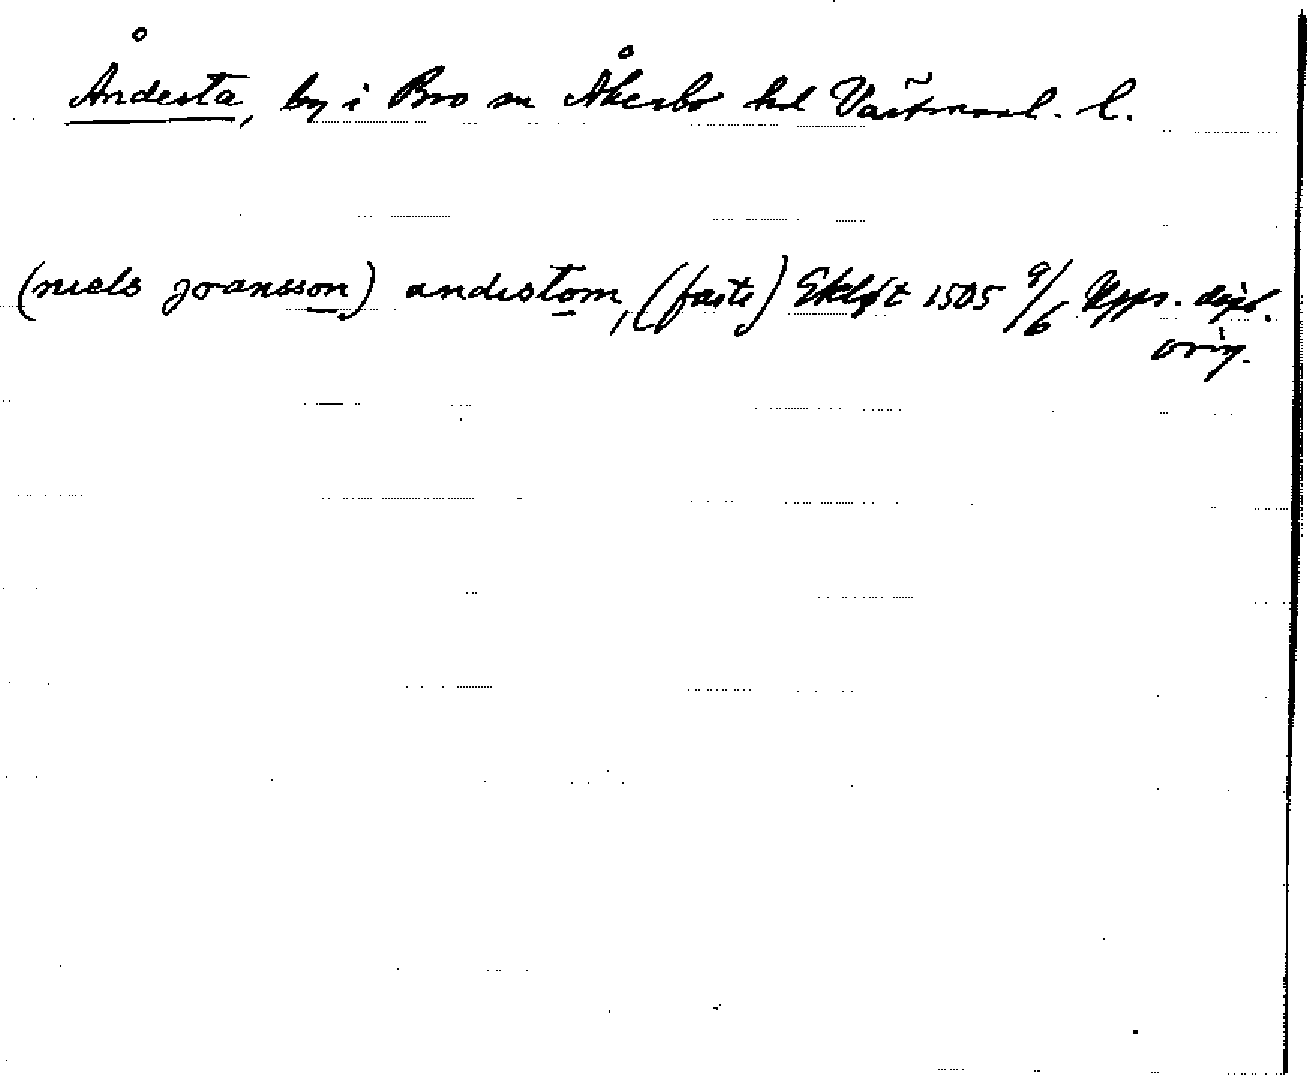 Åndesta, by i Bro sn Åkerbo hd Västmanl. l.
(niels joansson) andistom, (faste) 1505 9/6 Upps. dipl.
orig.